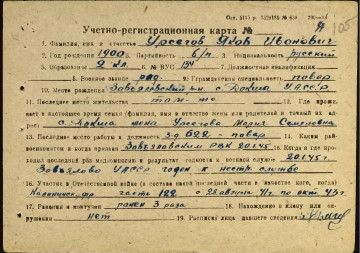 Учетно-регистрационная карта №
1. Фамилия, имя и отчество Яков Иванович
2. Год рождения 1900 Партийность б/п Национальность русский
5. Образование 2 кл. 6. № ВУС 134 7. Должностная квалификация
8. Воинское звание ряд. 9. Гражданская специальность повар
10. Место рождения Завьяловский р-н с. Якшур УАССР
11. Последнее место жительства там-же 12. Где прожи-
вает в настоящее время семья (фамилия, имя и отчество жены или родителей и точный их ад-
рес) жена Мария Семеновна
13. Последнее место работы и должность з-д 622 - повар 14. Каким рай-
военкоматом и когда призван Завьяловским РВК 20.1.45 15. Когда и где
проходил последний раз медкомиссию и результат годности к военной службе 20.1.45 г
Завьялово УАССР годен к нестр. службе
16. Участие в Отечественной войне (в составе какой последней части и качестве кого, когда)
Калининск. фр. часть 188 с 28 августа 41 г по окт 43 г
17. Ранения и контузии ранен 3 раза 18. Нахождение в плену или ок-
ружении нет 19. Расписка лица давшего сведения